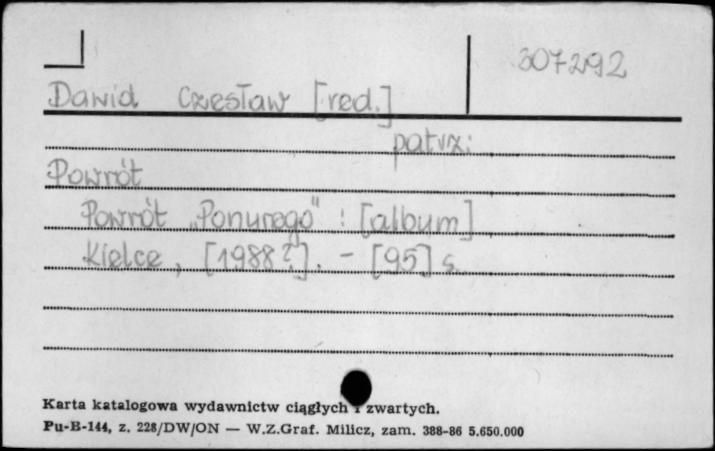 307292
Dawid Czesław [red.]
patrz:
Powrót
Powrót „Ponurego" : [album]
Kielce, [1988?]. - [95] s.
Karta katalogowa wydawnictw ciągłych i zwartych.
Pu-B-144, z. 228/DW/ON — W.Z.Graf. Milicz, zam. 388-86 5.650.000